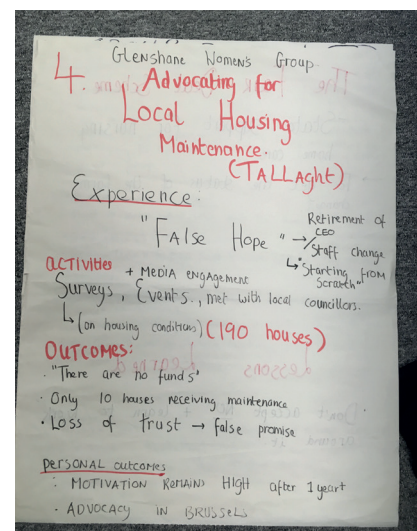 Glenshane Women's Group
4. Advocating for
Local Housing
Maintenance.
(TALLAght)
Experience:
"False Hope" → Retirement of
CEO
/Staff change
↳ "Starting from
Scratch"
ACTIVITIES + MEDIA ENGAGEMENT
Surveys, Events., met with local councillors.
↳ (on housing conditions) (190 houses)
OUTCOMES:
· "There are no funds"
· Only 10 houses receiving maintenance
· Loss of trust → false promise
PERSONAL OUTCOMES
: MOTIVATION REMAINS HIGH after 1 year+
· ADVOCACY IN BRUSSELS